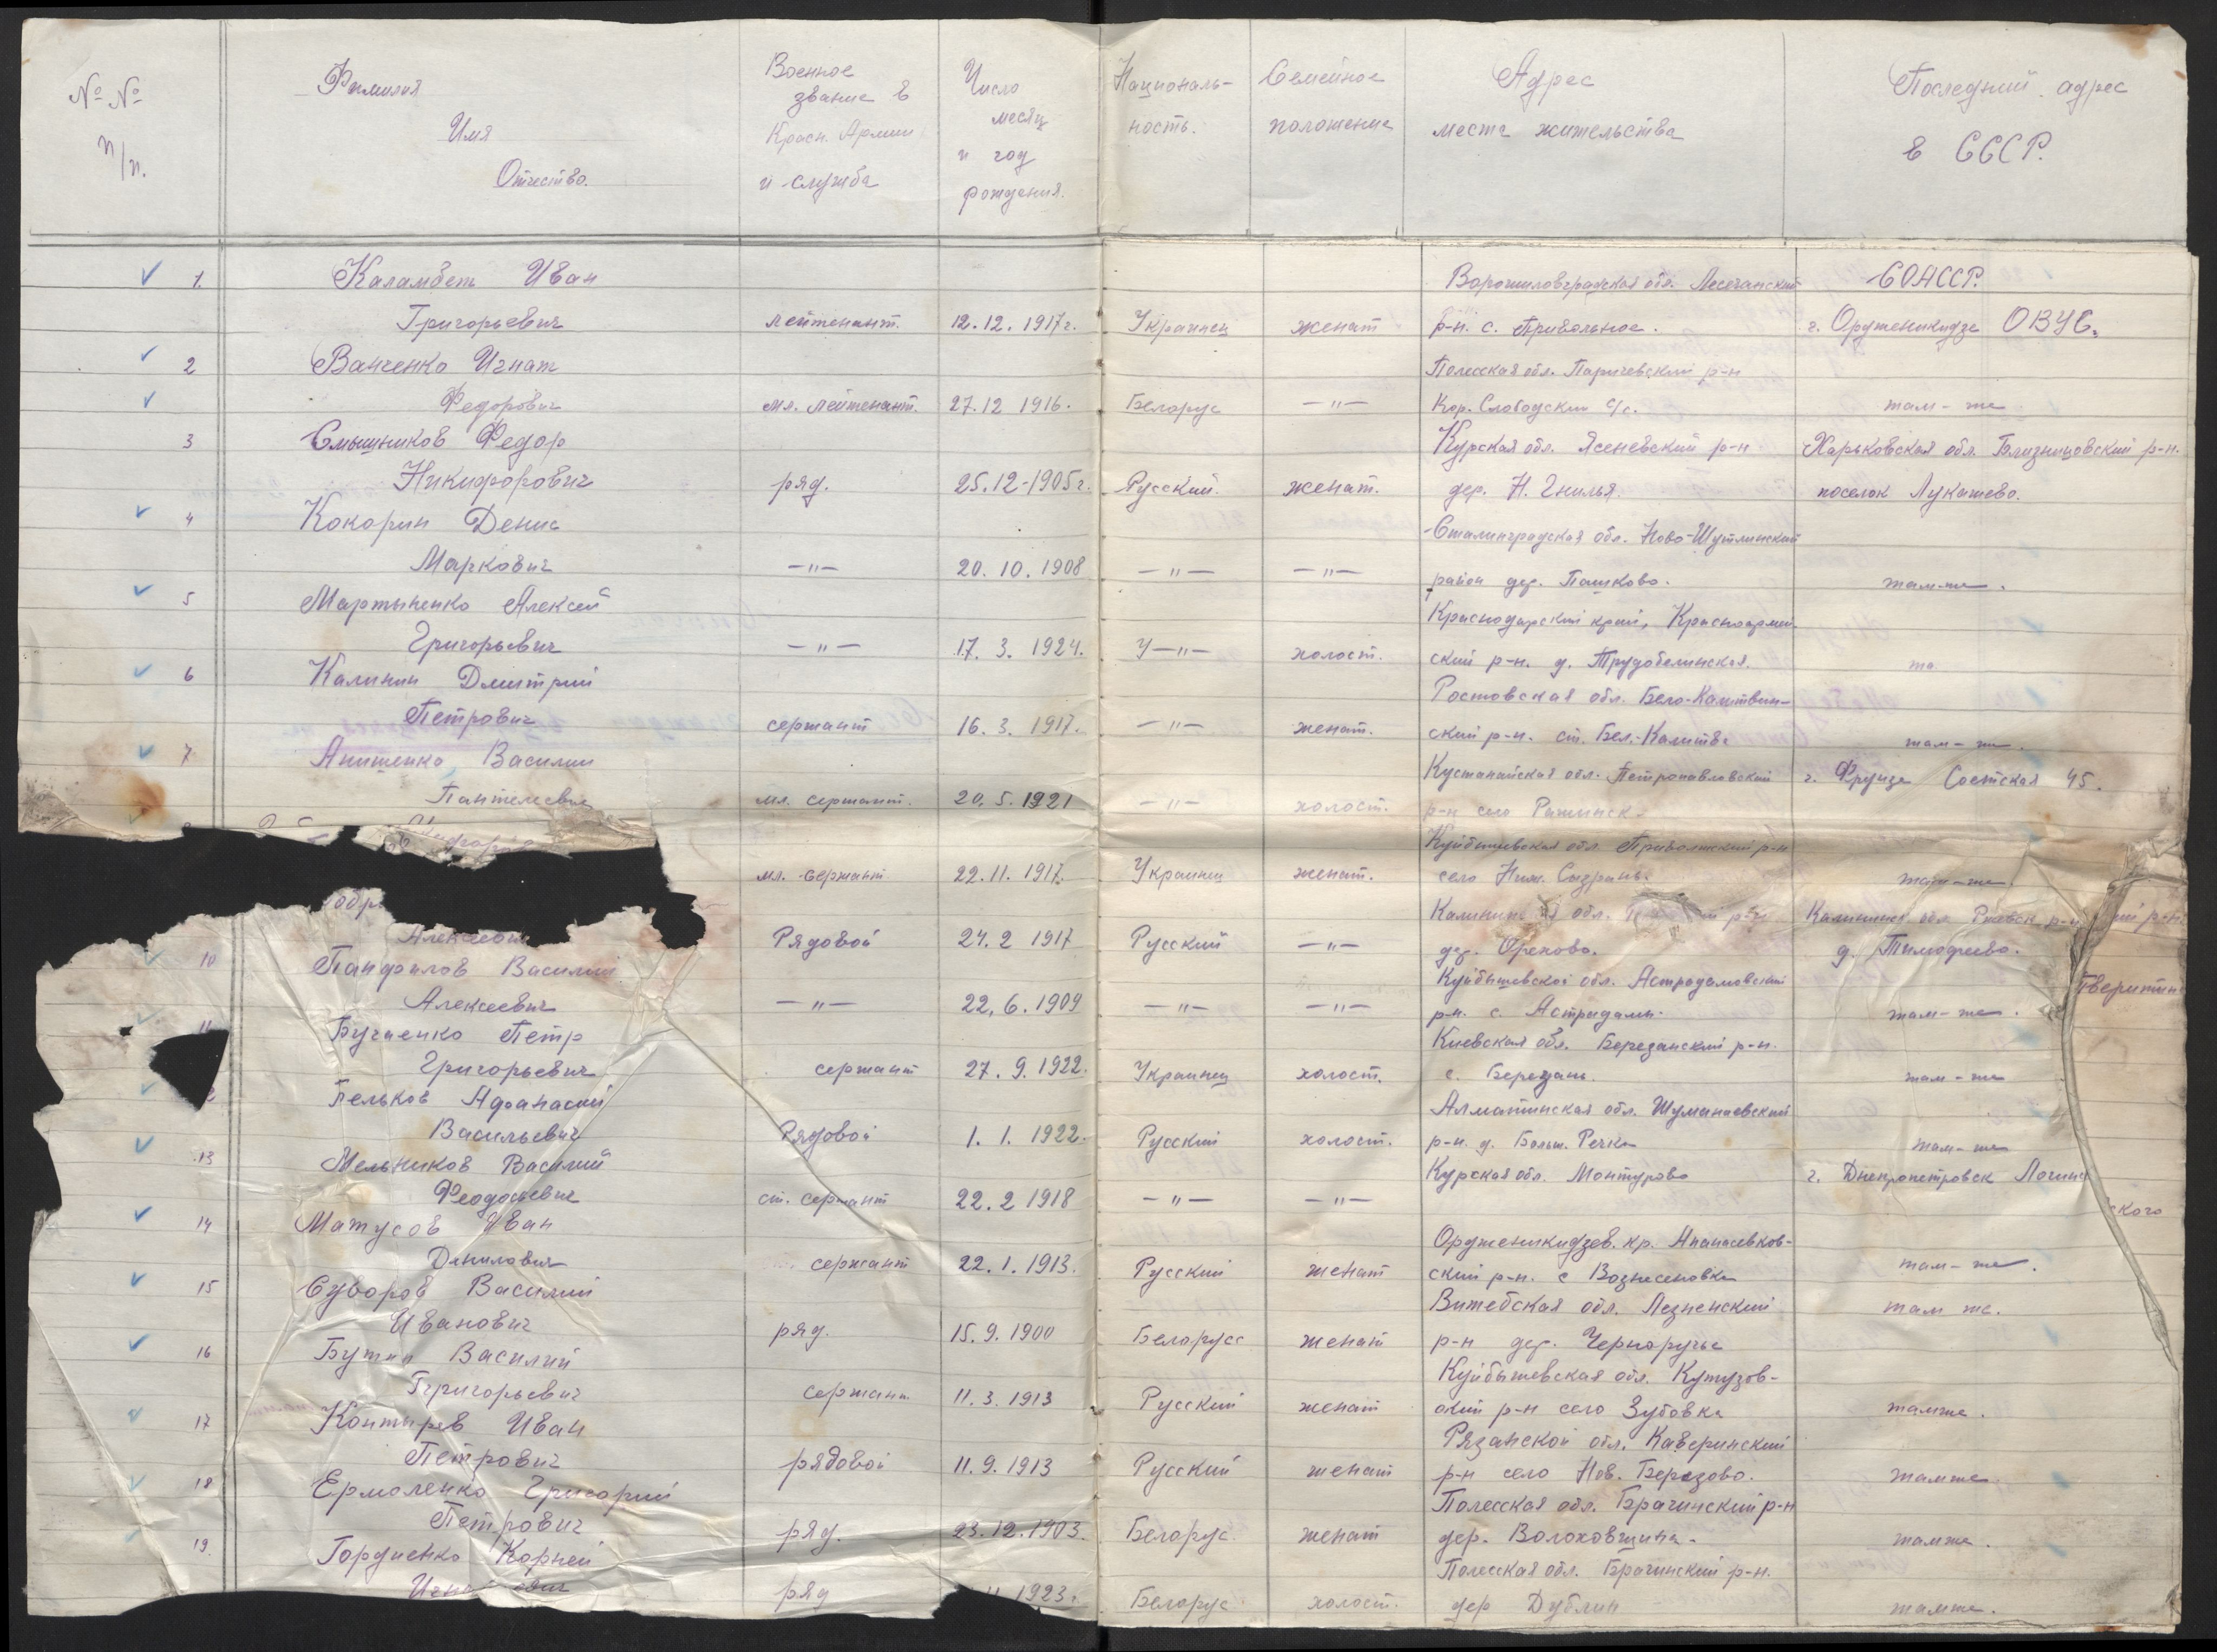 № №
п/п.
Фамилия
Имя
Отчество.
Военное
звание в
Красн. Армии
и служба
Число
месяц
и год
рождения.
Националь-
ность.
Семейное
положение
Адрес
места жительства
Последний адрес
в СССР.
1. Каламбет Иван Ворошиловградская обл. Лисичанский СОАССР.
Григорьевич лейтенант. 12.12.1917г. Украинец женат р-н. с. Привольное. г. Орджоникидзе ОВУС.
2 Ванченко Игнат Полесская обл. Паричевский р-н
Федорович мл. лейтенант. 27.12 1916. Белорус —"— Кор. Слободский с/с. там-же
3 Смышников Федор Курская обл. Ясеневский р-н Харьковская обл. Близнецовский р-н.
Никифорович ряд. 25.12-1905г. Русский. женат. дер. Н. Гнилья. поселок Лукашево.
4 Кокорин Денис Сталинградская обл. Ново-
Маркович —"— 20.10.1908 —"— —"— район дер. Пашково. там-же.
5 Мартыненко Алексей Краснодарский край, Красноармей-
Григорьевич —"— 17.3.1924. У—"— холост. ский р-н. д. Трудобелинская. то
6 Калинин Дмитрий Ростовская обл. Бело-Калитвин-
Петрович сержант 16.3.1917. —"— женат. ский р-н. ст. Бел.-Калитва там-же.
7 Анищенко Василий Кустанайская обл. Петропавловский г. Фрунзе 45.
Пантелеевич мл. сержант. 20.5.1921 —"— холост. р-н село
Куйбышевская обл. Приволжский р-н
мл. сержант 22.11.1917. Украинец женат. село Ниж. Сызрань. там-же.
Калинин. обл. р-н Калининск обл. Ржевск р-н
Алексеевич Рядовой 24.2 1917 Русский —"— дер. Орехово. д. Тимофеево.
10 Панфилов Василий Куйбышевской обл. Астрадамовский
Алексеевич —"— 22.6.1909 —"— —"— р-н. с. Астрадамы. там-же.
11 Бугаенко Петр Киевская обл. Березанский р-н.
Григорьевич сержант 27.9.1922. Украинец холост. с. Березань. там-же
2 Пельков Афанасий Алматинская обл.
Васильевич Рядовой 1.1.1922. Русский холост. р-н. д. Больш. Речка там-же
13 Мельников Василий Курская обл. Мантурово г. Днепропетровск
Феодосиевич ст. сержант 22.2 1918 —"— —"— ского
14 Матусов Иван Орджоникидзев. кр. Апанасевков-
Данилович сержант 22.1.1913. Русский женат ский р-н. с Вознесеновка там-же.
15 Суворов Василий Витебская обл. Лезненский там же.
Иванович ряд. 15.9.1900 Белорусс женат р-н дер. Черноручье
16 Бутин Василий Куйбышевская обл. Кутузов-
Григорьевич сержант 11.3.1913 Русский женат ский р-н село Зубовка тамже.
17 Контырев Иван Рязанской обл. Каверинский
Петрович рядовой 11.9.1913 Русский женат р-н село Нов. Березово. тамже.
18 Ермоленко Григорий Полесская обл. Брагинский р-н
Петрович ряд. 23.12.1903. Белорус. женат дер. Волоховщина. тамже.
19. Гордиенко Корней Полесская обл. Брагинский р-н.
ряд 1923. Белорус холост. дер Дублин тамже.